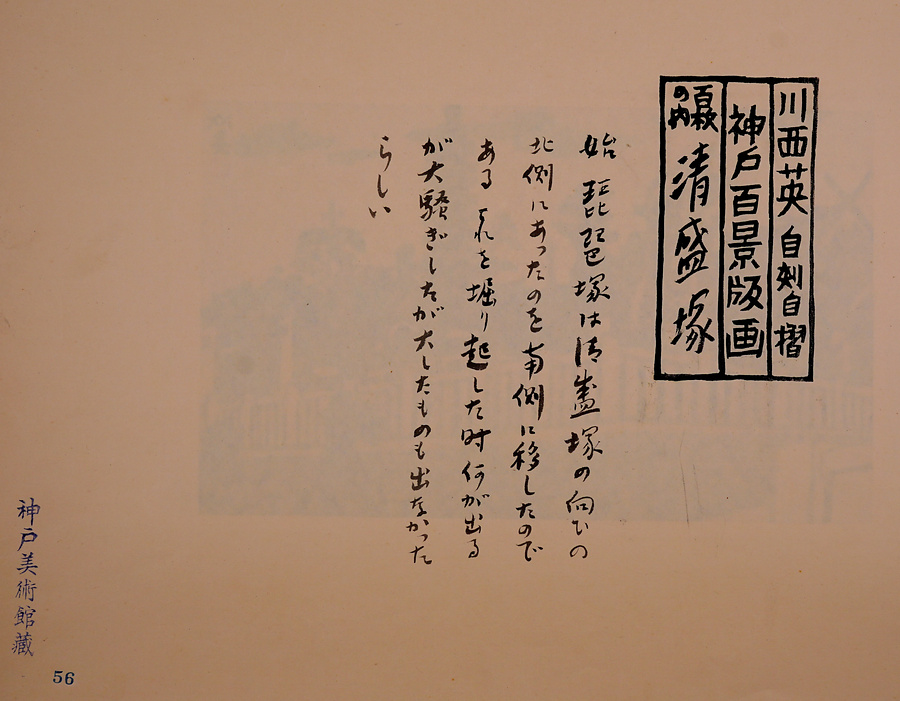 川西英 自刻自摺
神戸百景版画
百枚の内 清盛塚
始 琵琶塚は清盛塚の向ひの
北側にあったのを南側に移したので
ある それを堀り起した時何が出る
が大騒ぎしたが大したものも出なかった
らしい
神戸美術館蔵
56